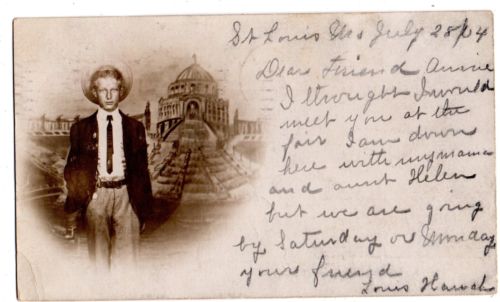 St Louis Mo July 28/04
Dear Friend Annie
I thought I would
meet you at the
fair I am down
here with my mama
and aunt Helen
but we are going
by Saturday or Monday
your friend
Louis